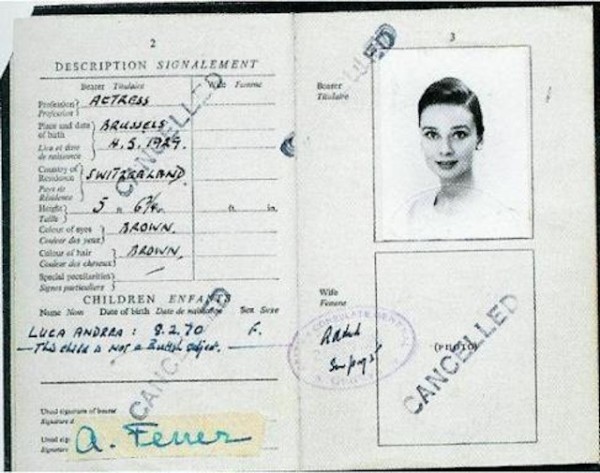 2
DESCRIPTION SIGNALEMENT
Bearer Titulaire
Wife Femme
Profession
Profession
ACTRESS
Place and date
of birth
BRUSSELS
Lieu et date
de naissance
4.5.1929.
Country of
Residence
SWITZERLAND
Pays de
Résidence
Height
Taille
5 ft. 6¾ in.
ft. in.
Colour of eyes
Couleur des yeux
BROWN
Colour of hair
Couleur des cheveux
BROWN
Special peculiarities
Signes particuliers
CHILDREN ENFANTS
Name Nom Date of birth Date de naissance Sex Sexe
LUCA ANDREA : 8.2.70 F.
This child is not a British subject.
Usual signature of bearer
Signature d
Usual sig
Signature
A. Ferrer
CANCELLED
CANCELLED
3
Bearer
Titulaire
Wife
Femme
CONSULATE GENERAL
(PHOTO)
CANCELLED